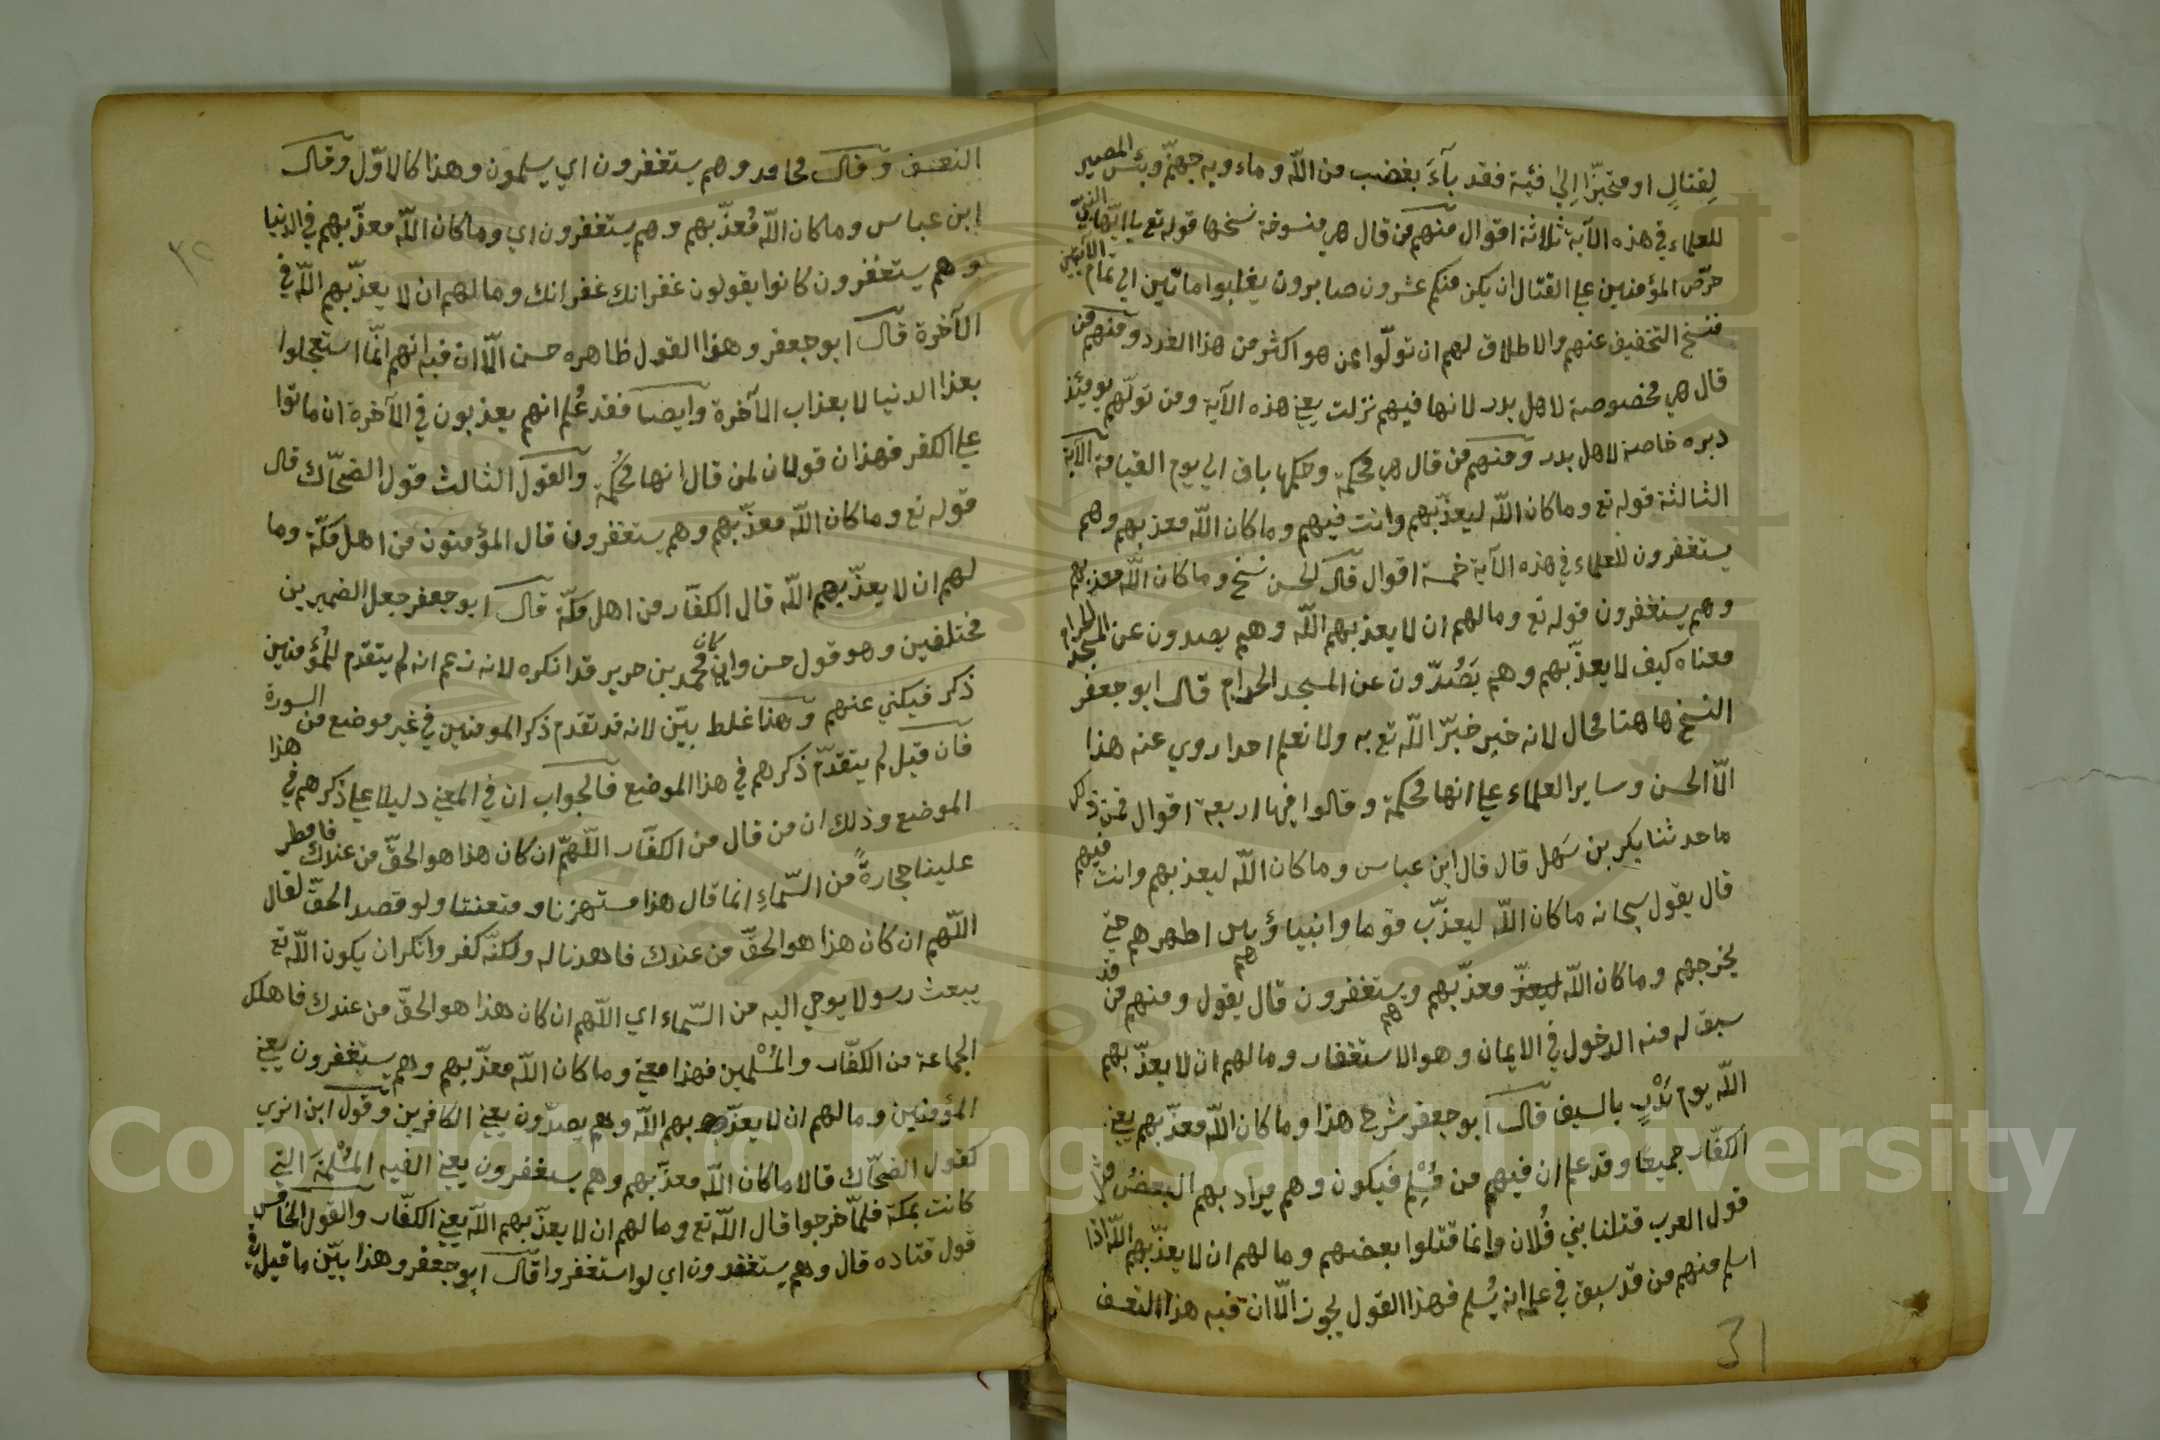 لِقتالٍ او متحيزًا اِلي فئية فقد بآءَ بغضب من اللّه وماءويه جهنّم وبئس المصير
للعلماء في هذه الآية ثلاثة اقوال منهم من قال هي منسوخة نسخها قوله تع يا ايّها النبيّ
حرّض المؤمنين علي القتال ان يكن منكم عشرون صابرون يغلبوا مائتين الي تمام الآيتين
فنسخ التخفيف عنهم والاطلاق لهم ان تولّوا ممن هو اكثر من هذا العدد ومنهم من
قال هي مخصوصة لاهل بدر لانها فيهم نزلت يعني هذه الآية ومن تولّهم يوميئذ
دبره خاصة لاهل بدر ومنهم من قال هي محكمة وحكمها باق الي يوم القيامة الآية
الثالثة قوله تع وما كان اللّه ليعذّبهم وانت فيهم وما كان اللّه معذبهم وهم
يستغفرون للعلماء في هذه الآية خمسة اقوال قال الحسن نسخ وما كان اللّه معذبهم
وهم يستغفرون قوله تع وما لهم ان لا يعذبهم اللّه وهم يصدون عن المسجد الحرام
معناه كيف لا يعذّبهم وهم يَصُدّون عن المسجد الحرام قال ابو جعفر
النسخ هاهنا محال لانه خبر خبّر اللّه تع به ولا نعلم احدا روي عنه هذا
الّا الحسن وساير العلماء علي انها محكمة وقالوا فيها اربعة اقوال فمن ذلك
ما حدثنا بكر بن سَهل قال قال ابن عباس وما كان اللّه ليعذبهم وانت فيهم
قال يقول سبحانه ما كان اللّه ليعذّب قوما وانبياؤهم بين اظهرهم حتي
يخرجهم وما كان اللّه معذّبهم وهم يستغفرون قال يقول ومنهم من قد
سبق له منه الدخول في الايمان وهو الاستغفار وما لهم ان لا يعذّبهم
اللّه يوم بَدْرٍ بالسيف قال ابو جعفر شرح هذا وما كان اللّه معذّبهم يعني
الكفّار جميعا وقد علم ان فيهم من مُسْلِم فيكون وهم يراد بهم البعضُ
قول العرب قتلنا بني فُلان وانما قتلوا بعضهم وما لهم ان لا يعذّبهم اللّه اذا
اسلم منهم من قد سبق في علمه انه يُسلم فهذا القول يجوز الّا ان فيه هذا التعسف
31
التعسف وقال مجاهد وهم يستغفرون اي يسلمون وهذا كالاوّل وقال
ابن عباس وما كان اللّه مُعذّبهم وهم يستغفرون اي وما كان اللّه معذّبهم في الدنيا
وهم يستغفرون كانوا يقولون غفرانك غفرانك وما لهم ان لا يعذّبهم اللّه في
الآخرة قال ابو جعفر وهذا القول ظاهره حسن الّا ان فيه انهم انّما استعجلوا
بعذا الدنيا لا بعذاب الآخرة وايضا فقد عُلم انهم يعذبون في الآخرة ان ماتوا
علي الكفر فهذان قولان لمن قال انها مُحكمة والقول الثالث قول الضحّاك قال
قوله تع وما كان اللّه معذّبهم وهم يستغفرون قال المؤمنون من اهل مكّة وما
لهم ان لا يعذّبهم اللّه قال الكفّار من اهل مكّة قال ابو جعفر جعل الضميرين
مختلفين وهو قول حسن وان كان محمد بن جرير قد انكره لانه زعم انه لم يتقدم للمُؤمنين
ذكر فيكني عنهم وهذا غلط بيّن لانه قد تقدم ذكر المومنين في غير موضع من السورة
فان قيل لم يتقدّم ذكرهم في هذا الموضع فالجواب ان في المعني دليلا علي ذكرهم في هذا
الموضع وذلك ان من قال من الكفّار اللّهمّ ان كان هذا هو الحقّ من عندك فامطر
علينا حجارةً من السّماءِ انما قال هذا مستهزئا ومتعنتا ولو قصد الحقّ لقال
اللّهم ان كان هذا هو الحقّ من عندك فاهدنا له ولكنّه كفر وانكر ان يكون اللّه تع
يبعث رسولا يوحي اليه من السّماء اي اللّهم ان كان هذا هو الحقّ من عندك فاهلك
الجماعة من الكفّار والمُسْلمين فهذا معني وما كان اللّه معذّبهم وهم يستغفرون يعني
المؤمنين وما لهم ان لا يعذّبهم اللّه وهم يصدّون يعني الكافرين وقول ابن ابزي
كقول الضحّاك قالا ما كان اللّه معذّبهم وهم يستغفرون يعني الفيه المُسْلمة التي
كانت بمكة فلمّا خرجوا قال اللّه تع وما لهم ان لا يعذّبهم اللّه يعني الكفّار والقول الخامس
قول قتاده قال وهم يستغفرون اي لو استغفروا قال ابو جعفر وهذا بيّن ما قيل فيه
٣٢
Copyright © King Saud University